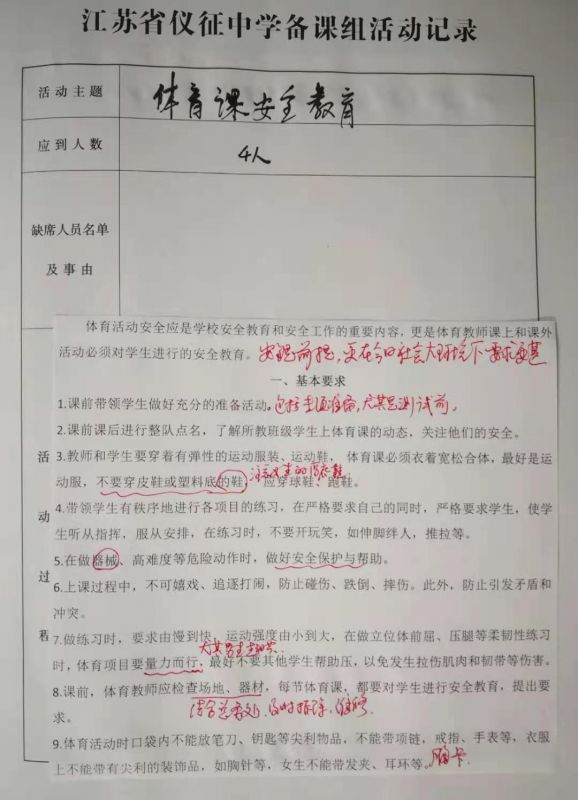 江苏省仪征中学备课组活动记录
活动主题
体育课安全教育
应到人数
4人
缺席人员名单
及事由
体育活动安全应是学校安全教育和安全工作的重要内容，更是体育教师课上和课外
活动必须对学生进行的安全教育。
一、基本要求
1.课前带领学生做好充分的准备活动。
2.课前课后进行整队点名，了解所教班级学生上体育课的动态，关注他们的安全。
3.教师和学生要穿着有弹性的运动服装、运动鞋，体育课必须衣着宽松合体，最好是运
动服，不要穿皮鞋或塑料底的鞋，应穿球鞋、跑鞋。
4.带领学生有秩序地进行各项目的练习，在严格要求自己的同时，严格要求学生，使学
生听从指挥，服从安排，在练习时，不要开玩笑，如伸脚绊人，推拉等。
5.在做器械、高难度等危险动作时，做好安全保护与帮助。
6.上课过程中，不可嬉戏、追逐打闹，防止碰伤、跌倒、摔伤。此外，防止引发矛盾和
冲突。
7.做练习时，要求由慢到快，运动强度由小到大，在做立位体前屈、压腿等柔韧性练习
时，体育项目要量力而行，最好不要其他学生帮助压，以免发生拉伤肌肉和韧带等伤害。
8.课前，体育教师应检查场地、器材，每节体育课，都要对学生进行安全教育，提出要
求。
9.体育活动时口袋内不能放笔刀、钥匙等尖利物品，不能带项链，戒指、手表等，衣服
上不能带有尖利的装饰品，如胸针等，女生不能带发夹、耳环等。胸卡
活动过程